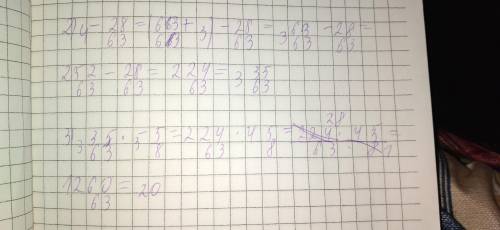 2) 4 - 28/63 = (63/63 + 3) - 28/63 = 3 63/63 - 28/63 =
252/63 - 28/63 = 224/63 = 3 35/63
3) 3 35/63 · 5 5/8 = 224/63 · 45/8 = 28 224/63 · 45/8 1 =
1260/63 = 20